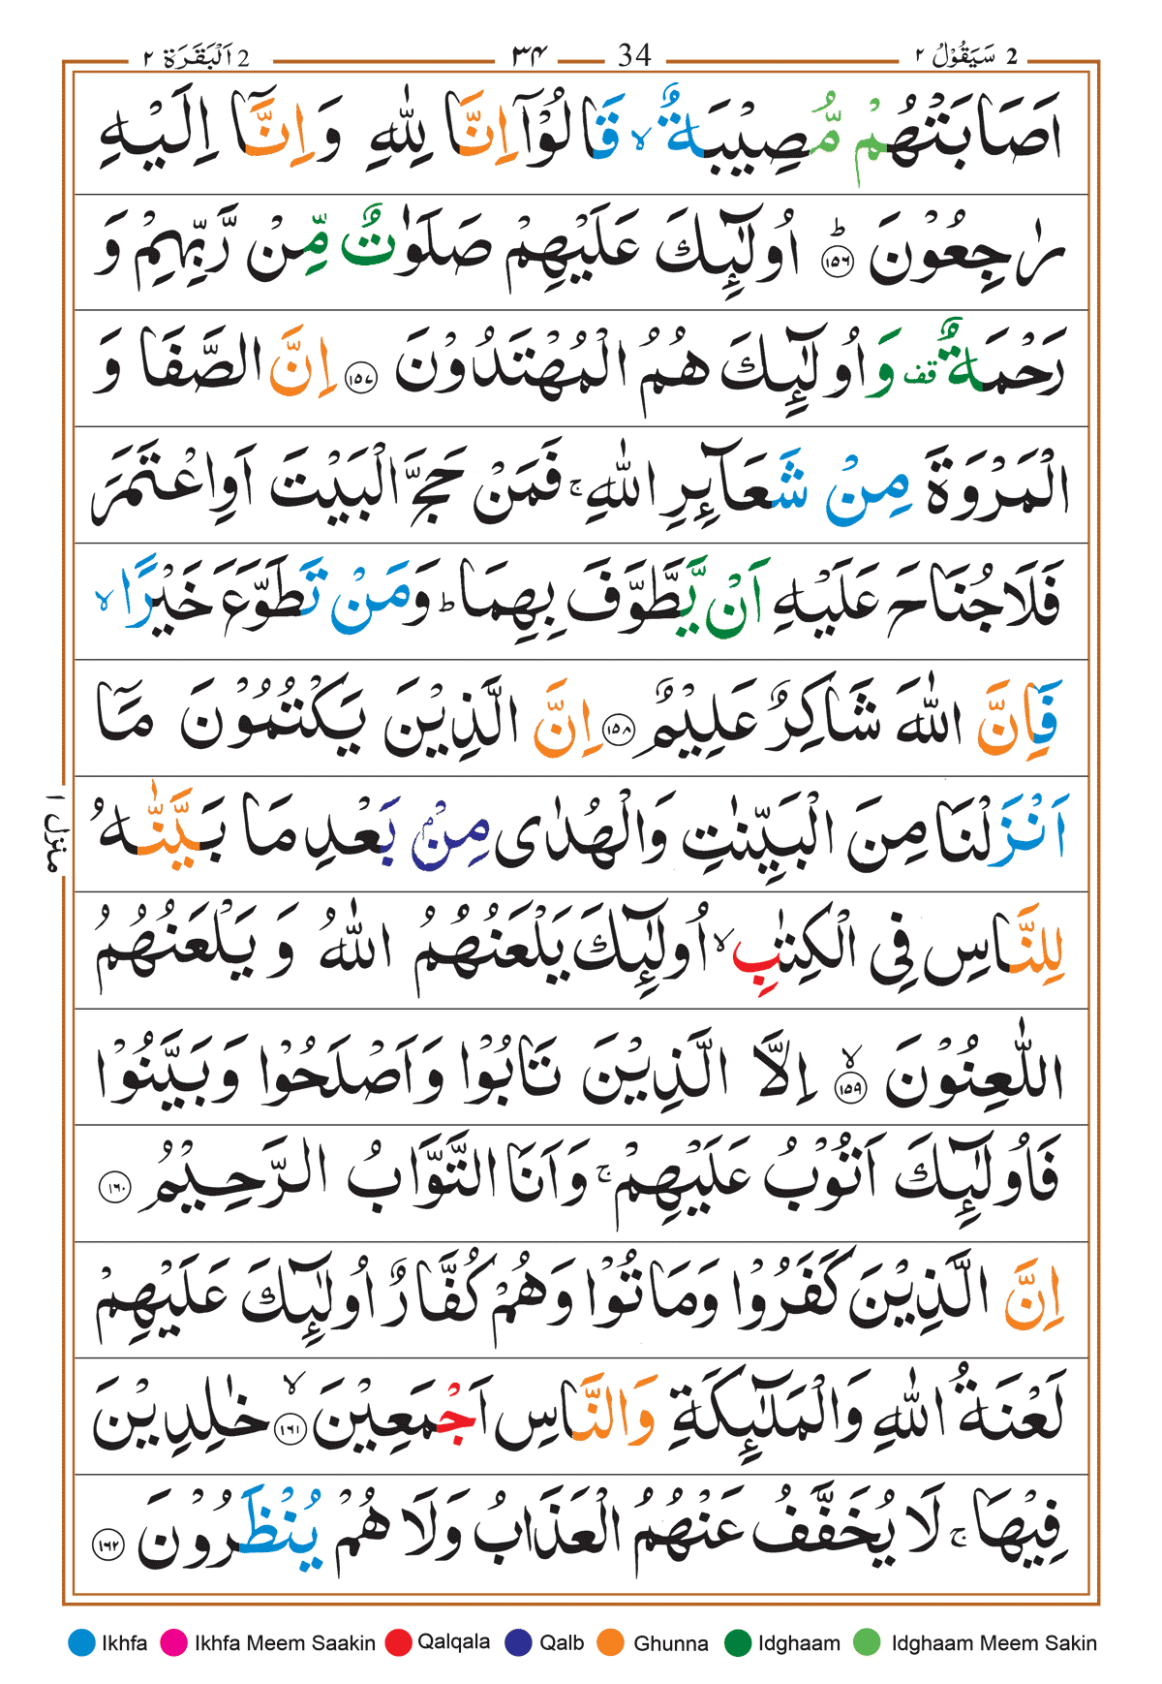 2 سَيَقُوْلُ ٢
34
٣٤
2 اَلْبَقَرَة ٢
اَصَابَتْهُمْ مُّصِيْبَةٌ ۙ قَالُوْٓا اِنَّا لِلّٰهِ وَاِنَّآ اِلَيْهِ
رٰجِعُوْنَ ؕ ١٥٦ اُولٰٓئِكَ عَلَيْهِمْ صَلَوٰتٌ مِّنْ رَّبِّهِمْ وَ
رَحْمَةٌ قف وَاُولٰٓئِكَ هُمُ الْمُهْتَدُوْنَ ١٥٧ اِنَّ الصَّفَا وَ
الْمَرْوَةَ مِنْ شَعَآئِرِ اللّٰهِ ۚ فَمَنْ حَجَّ الْبَيْتَ اَوِاعْتَمَرَ
فَلَاجُنَاحَ عَلَيْهِ اَنْ يَّطَّوَّفَ بِهِمَا ؕ وَمَنْ تَطَوَّعَ خَيْرًا ۙ
فَاِنَّ اللّٰهَ شَاكِرٌ عَلِيْمٌ ١٥٨ اِنَّ الَّذِيْنَ يَكْتُمُوْنَ مَآ
اَنْزَلْنَا مِنَ الْبَيِّنٰتِ وَالْهُدٰى مِنْۢ بَعْدِ مَا بَيَّنّٰهُ
لِلنَّاسِ فِى الْكِتٰبِ ۙ اُولٰٓئِكَ يَلْعَنُهُمُ اللّٰهُ وَ يَلْعَنُهُمُ
اللّٰعِنُوْنَ ۙ ١٥٩ اِلَّا الَّذِيْنَ تَابُوْا وَاَصْلَحُوْا وَبَيَّنُوْا
فَاُولٰٓئِكَ اَتُوْبُ عَلَيْهِمْ ۚ وَاَنَا التَّوَّابُ الرَّحِيْمُ ١٦٠
اِنَّ الَّذِيْنَ كَفَرُوْا وَمَاتُوْا وَهُمْ كُفَّارٌ اُولٰٓئِكَ عَلَيْهِمْ
لَعْنَةُ اللّٰهِ وَالْمَلٰٓئِكَةِ وَالنَّاسِ اَجْمَعِيْنَ ۙ ١٦١ خٰلِدِيْنَ
فِيْهَا ۚ لَا يُخَفَّفُ عَنْهُمُ الْعَذَابُ وَلَا هُمْ يُنْظَرُوْنَ ١٦٢
منزل ١
Ikhfa Ikhfa Meem Saakin Qalqala Qalb Ghunna Idghaam Idghaam Meem Sakin